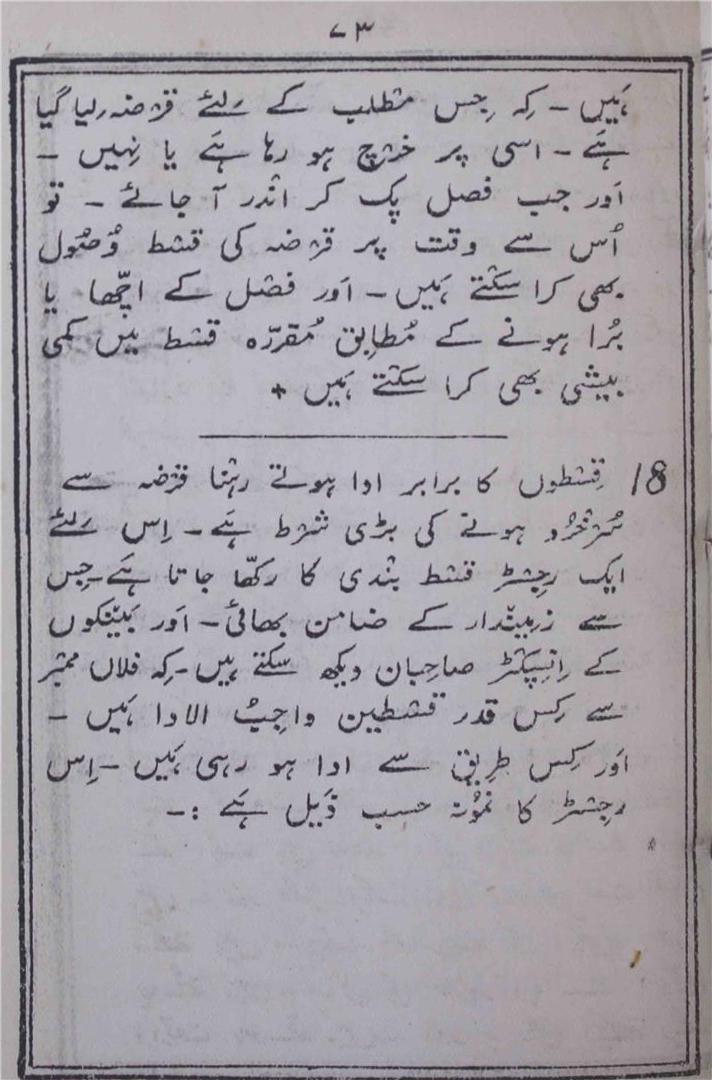 ۷۳
ہَیں ۔ کِہ جِس مطلب کے لِئے قرضہ لِیا گیا
ہے ۔ اسی پر خرچ ہو رہا ہَے یا نہیں ۔
اَور جب فصل پک کر انْدر آ جائے ۔ تو
اُس سے وقت پر قرْضہ کی قسْط وُصُول
بھی کرا سکتے ہَیں ۔ اَور فصْل کے اچّھا یا
بُرا ہونے کے مُطابِق مُقررّہ قسْط میں کمی
بیشی بھی کرا سکتے ہَیں +
18/ قِسْطوں کا برابر ادا ہوتے رہْنا قرْضہ سے
سُرْخرُو ہونے کی بڑی شرْط ہَے ۔ اِس لِئے
ایک رجِسْٹر قسْط بنْدی کا رکھّا جاتا ہَے ۔ جِس
سے زمِینْدار کے ضامن بھائی ۔ اَور بَینْکوں
کے اِنسپِکْٹر صاحِبان دیکھ سکتے ہیں ۔ کِہ فلاں ممْبر
سے کِس قدر قسْطین واجِبُ الادا ہَیں ۔
اَور کِس طرِیق سے ادا ہو رہی ہَیں ۔ اِس
رجِسْٹر کا نمُونہ حسب ذَیل ہَے :۔